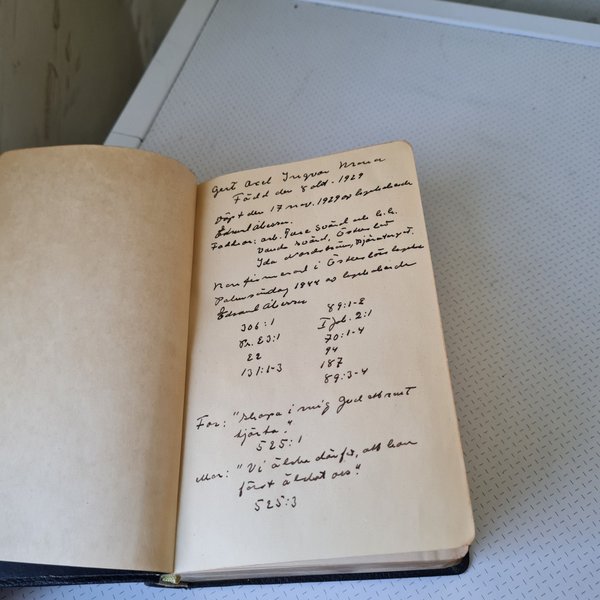 Gert Axel Ingvar
Född den 8 okt. 1929
Döpt den 17 nov. 1929 av
Edvard
Faddrar: arb. Svärd och h.h.
Svärd, Österlöv
Ida Nordström,
Konfirmerad i Österlövs kyrka
Palmsöndag 1944 av
Edvard
306:1
Ps. 23:1
22
131:1-3
89:1-2
I Joh. 2:1
70:1-4
94
187
89:3-4
Far: "Skapa i mig Gud ett rent
hjärta."
525:1
Mor: "Vi älska därför, att han
först älskat oss".
525:3